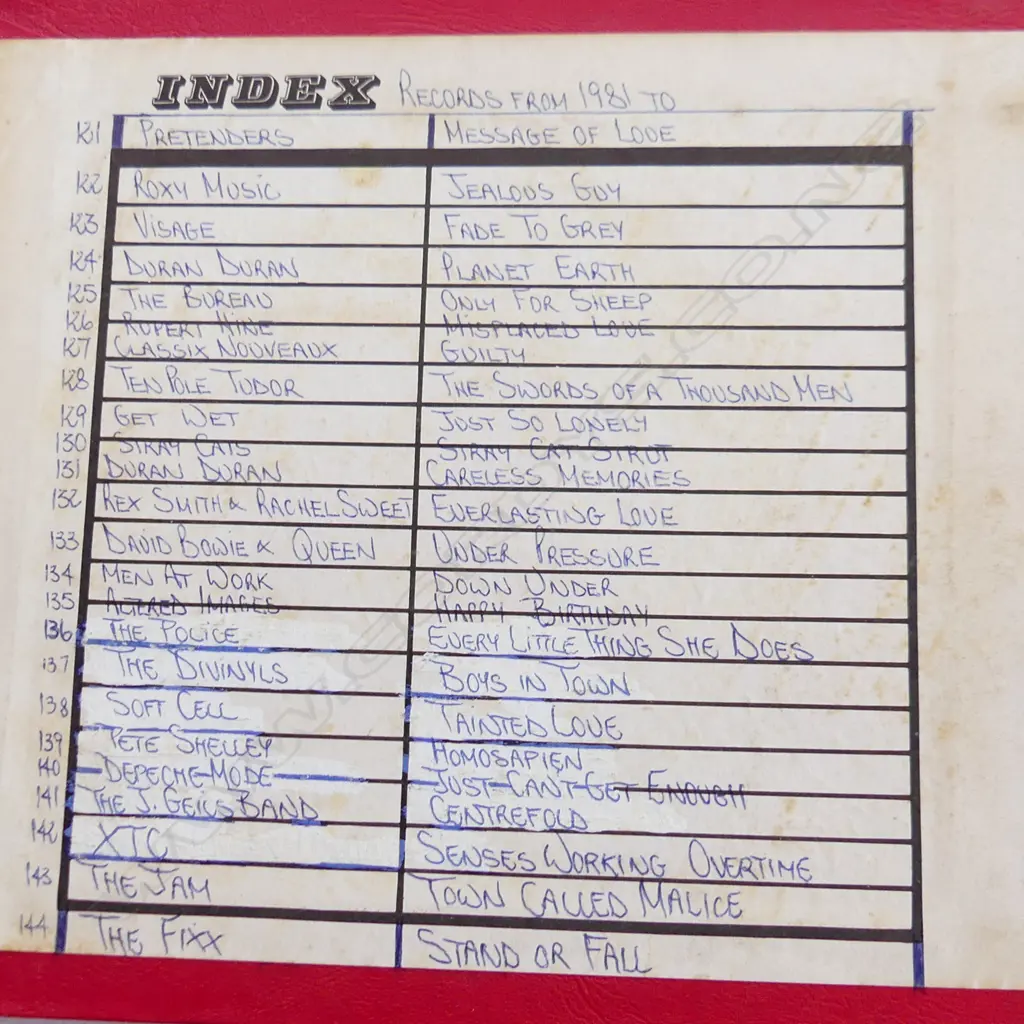 INDEX RECORDS FROM 1981 TO
121 PRETENDERS MESSAGE OF LOVE
122 ROXY MUSIC JEALOUS GUY
123 VISAGE FADE TO GREY
124 DURAN DURAN PLANET EARTH
125 THE BUREAU ONLY FOR SHEEP
126 RUPERT HINE MISPLACED LOVE
127 CLASSIX NOUVEAUX GUILTY
128 TEN POLE TUDOR THE SWORDS OF A THOUSAND MEN
129 GET WET JUST SO LONELY
130 STRAY CATS STRAY CAT STRUT
131 DURAN DURAN CARELESS MEMORIES
132 REX SMITH & RACHEL SWEET EVERLASTING LOVE
133 DAVID BOWIE & QUEEN UNDER PRESSURE
134 MEN AT WORK DOWN UNDER
135 ALTERED IMAGES HAPPY BIRTHDAY
136 THE POLICE EVERY LITTLE THING SHE DOES
137 THE DIVINYLS BOYS IN TOWN
138 SOFT CELL TAINTED LOVE
139 PETE SHELLEY HOMOSAPIEN
140 DEPECHE MODE JUST CAN'T GET ENOUGH
141 THE J. GEILS BAND CENTREFOLD
142 XTC SENSES WORKING OVERTIME
143 THE JAM TOWN CALLED MALICE
144 THE FIXX STAND OR FALL